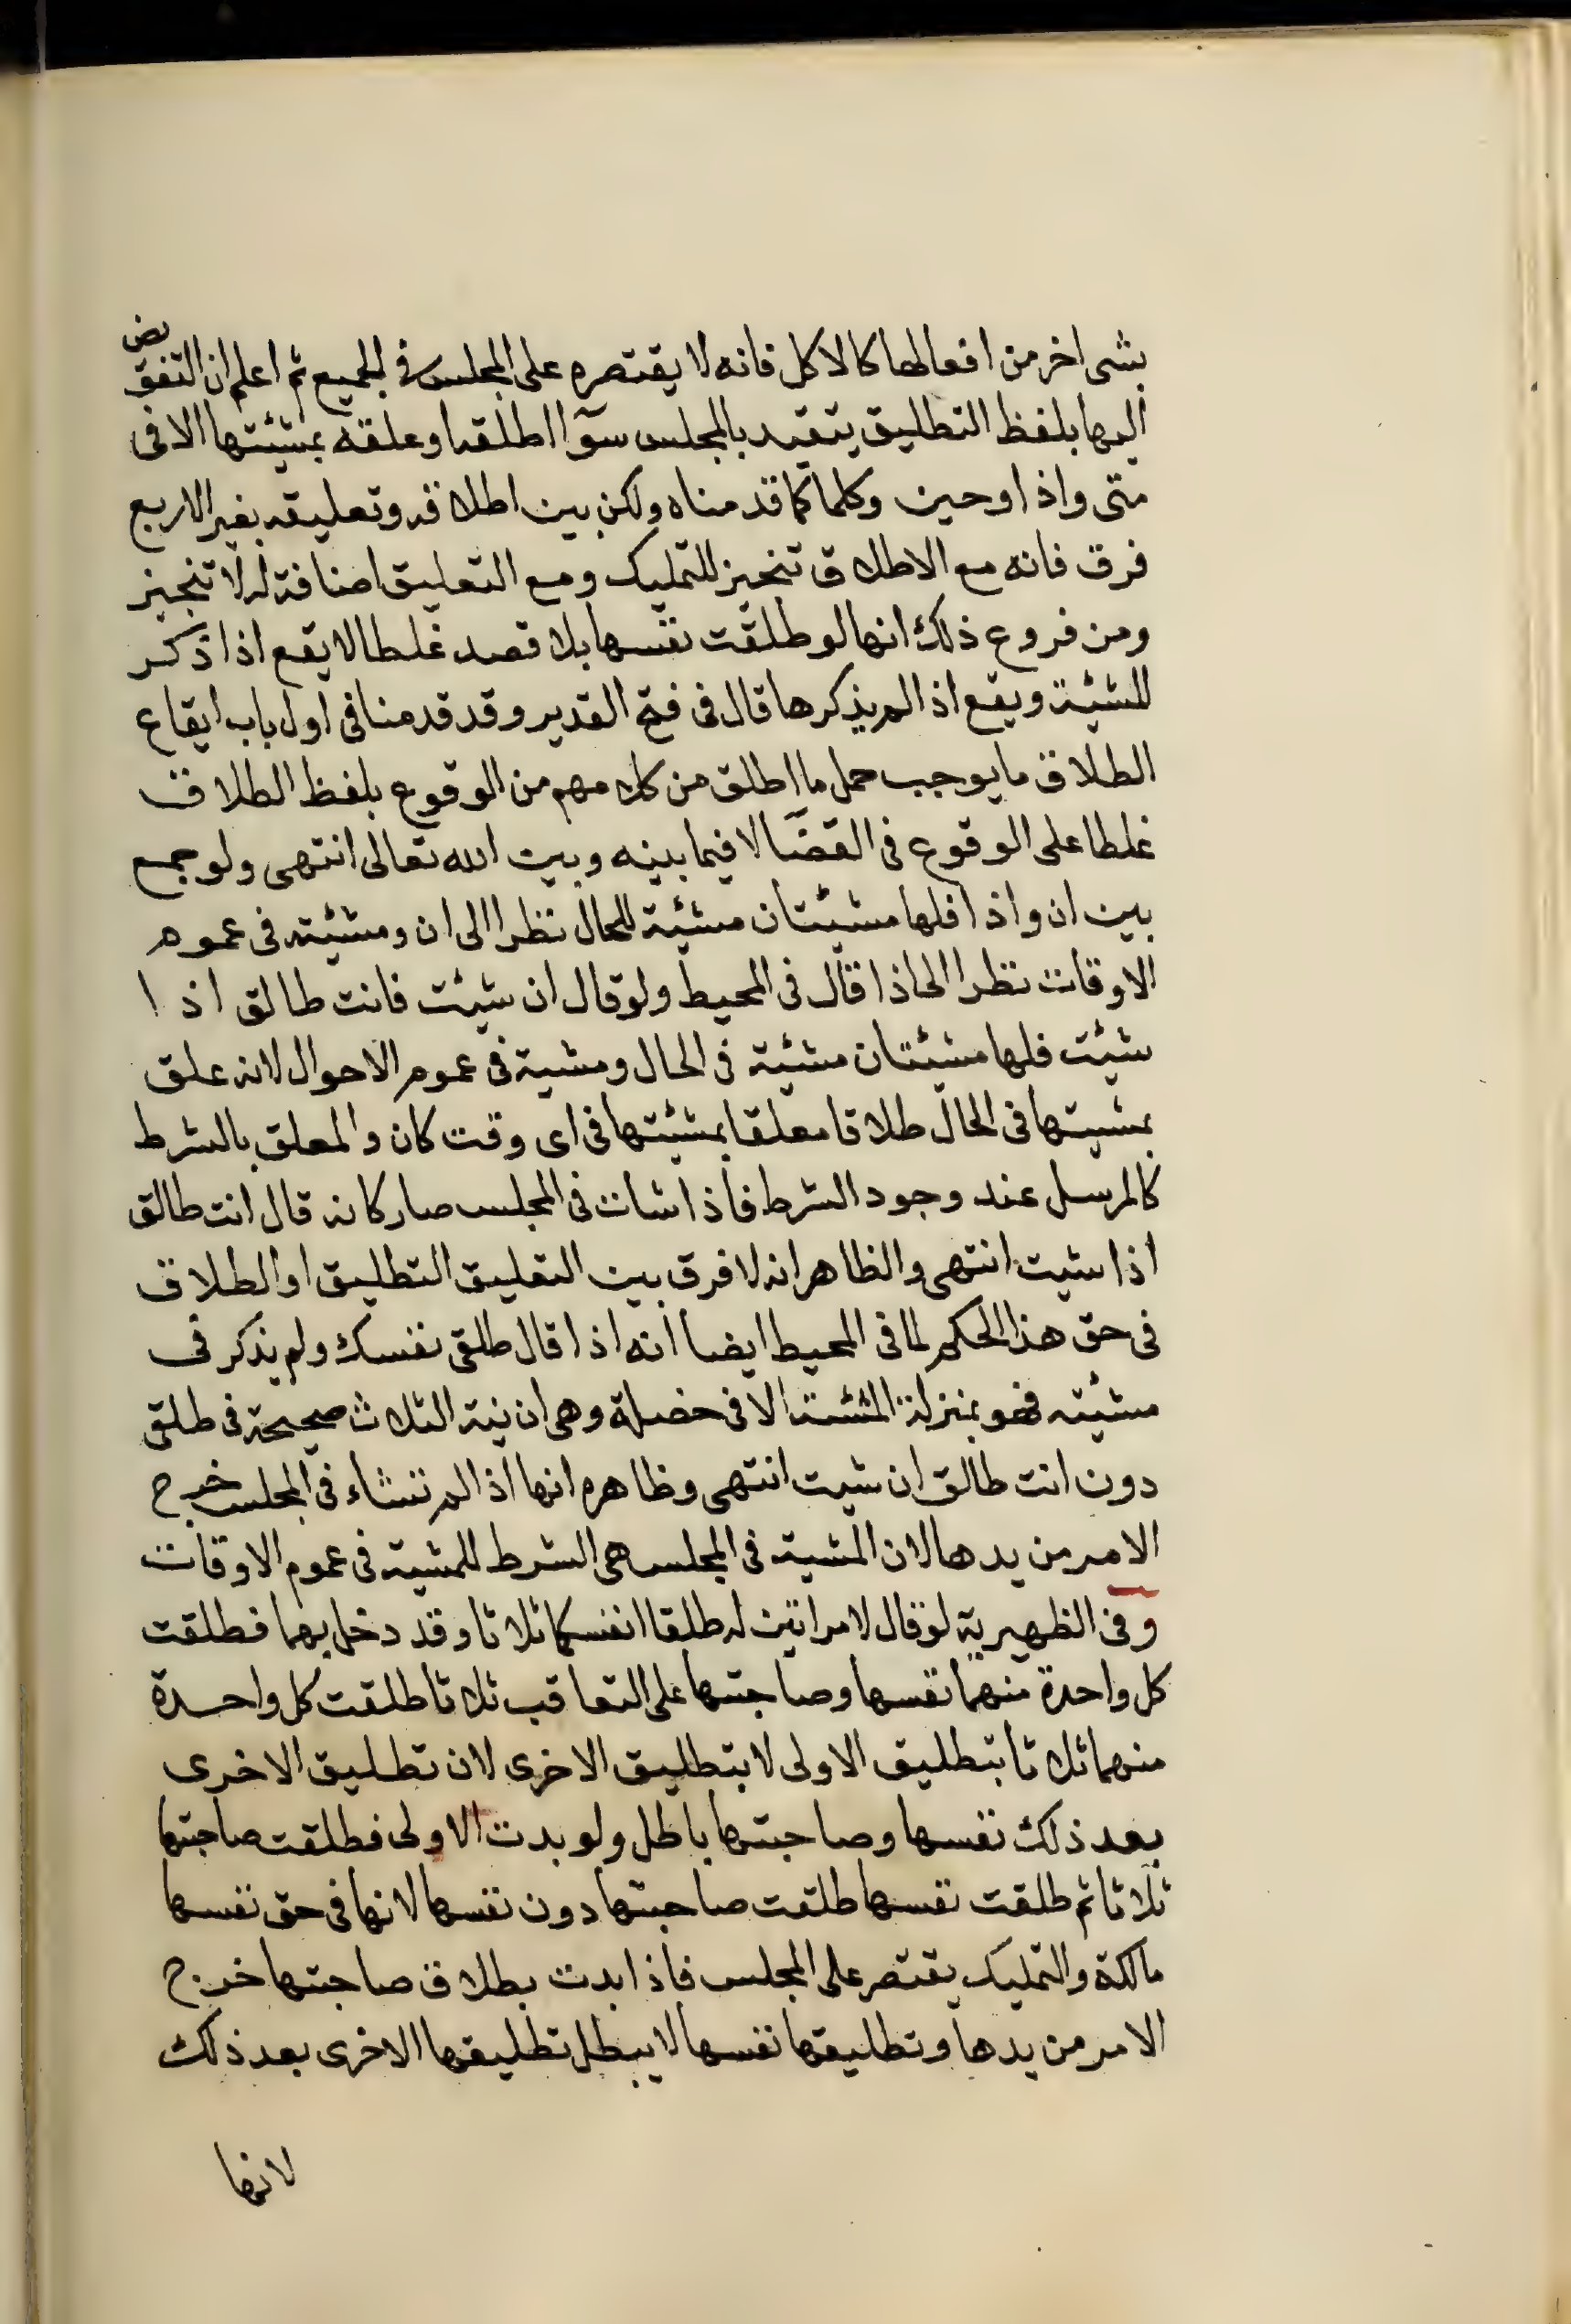 بشى اخر من افعالها كالاكل فانه لا يقتصر على المجلس فى الجميع ثم اعلم ان التفويض
اليها بلفظ التطليق يتقيد بالمجلس سوآ اطلقه او علقه بمشيئتها الا فى
متى واذا وحين وكلما كما قدمناه ولكن بين اطلاقه وتعليقه بغير الاربع
فرق فانه مع الاطلاق تنجيز للتمليك ومع التعليق اضافة له لا تنجيز
ومن فروع ذلك انها لو طلقت نفسها بلا قصد غلطا لا يقع اذا ذكر
المشيئة ويقع اذا لم يذكرها قال فى فتح القدير وقد قدمنا فى اول باب ايقاع
الطلاق ما يوجب حمل ما اطلق من كلامهم من الوقوع بلفظ الطلاق
غلطا على الوقوع فى القضآ لا فيما بينه وبين الله تعالى انتهى ولو جمع
بين ان واذا فلها مشيئتان مشيئة للحال نظرا الى ان ومشيئته فى عموم
الاوقات نظرا الى اذا قال فى المحيط ولو قال ان شيئت فانت طالق اذا
شيئت فلها مشيئتان مشيئة فى الحال ومشية فى عموم الاحوال لانه علق
بمشيتها فى الحال طلاقا معلقا بمشيئتها فى اى وقت كان والمعلق بالشرط
كالمرسل عند وجود الشرط فاذا شات فى المجلس صار كانه قال انت طالق
اذا شيت انتهى والظاهر انه لا فرق بين التعليق التطليق او الطلاق
فى حق هذا الحكم لما فى المحيط ايضا انه اذا قال طلقى نفسك ولم يذكر فى
مشيئته فهو بمنزلة المشئة الا فى خصلة وهى ان نية الثلاث صحيحة فى طلقى
دون انت طالق ان شيت انتهى وظاهره انها اذا لم تشاء فى المجلس خرج
الامر من يدها لان المشية فى المجلس هى الشرط للمشية فى عموم الاوقات
وفى الظهيرية لو قال لامراتين له طلقا انفسكما ثلاثا وقد دخل بهما فطلقت
كل واحدة منهما نفسها وصاحبتها على التعاقب ثلاثا طلقت كل واحدة
منهما ثلاثا بتطليق الاولى لا بتطليق الاخرى لان تطليق الاخرى
بعد ذلك نفسها وصاحبتها باطل ولو بدت الاولى فطلقت صاحبتها
ثلاثا ثم طلقت نفسها طلقت صاحبتها دون نفسها لانها فى حق نفسها
مالكة والتمليك يقتصر على المجلس فاذا بدت بطلاق صاحبتها خرج
الامر من يدها وتطليقها نفسها لا يبطل تطليقها الاخرى بعد ذلك
لانها